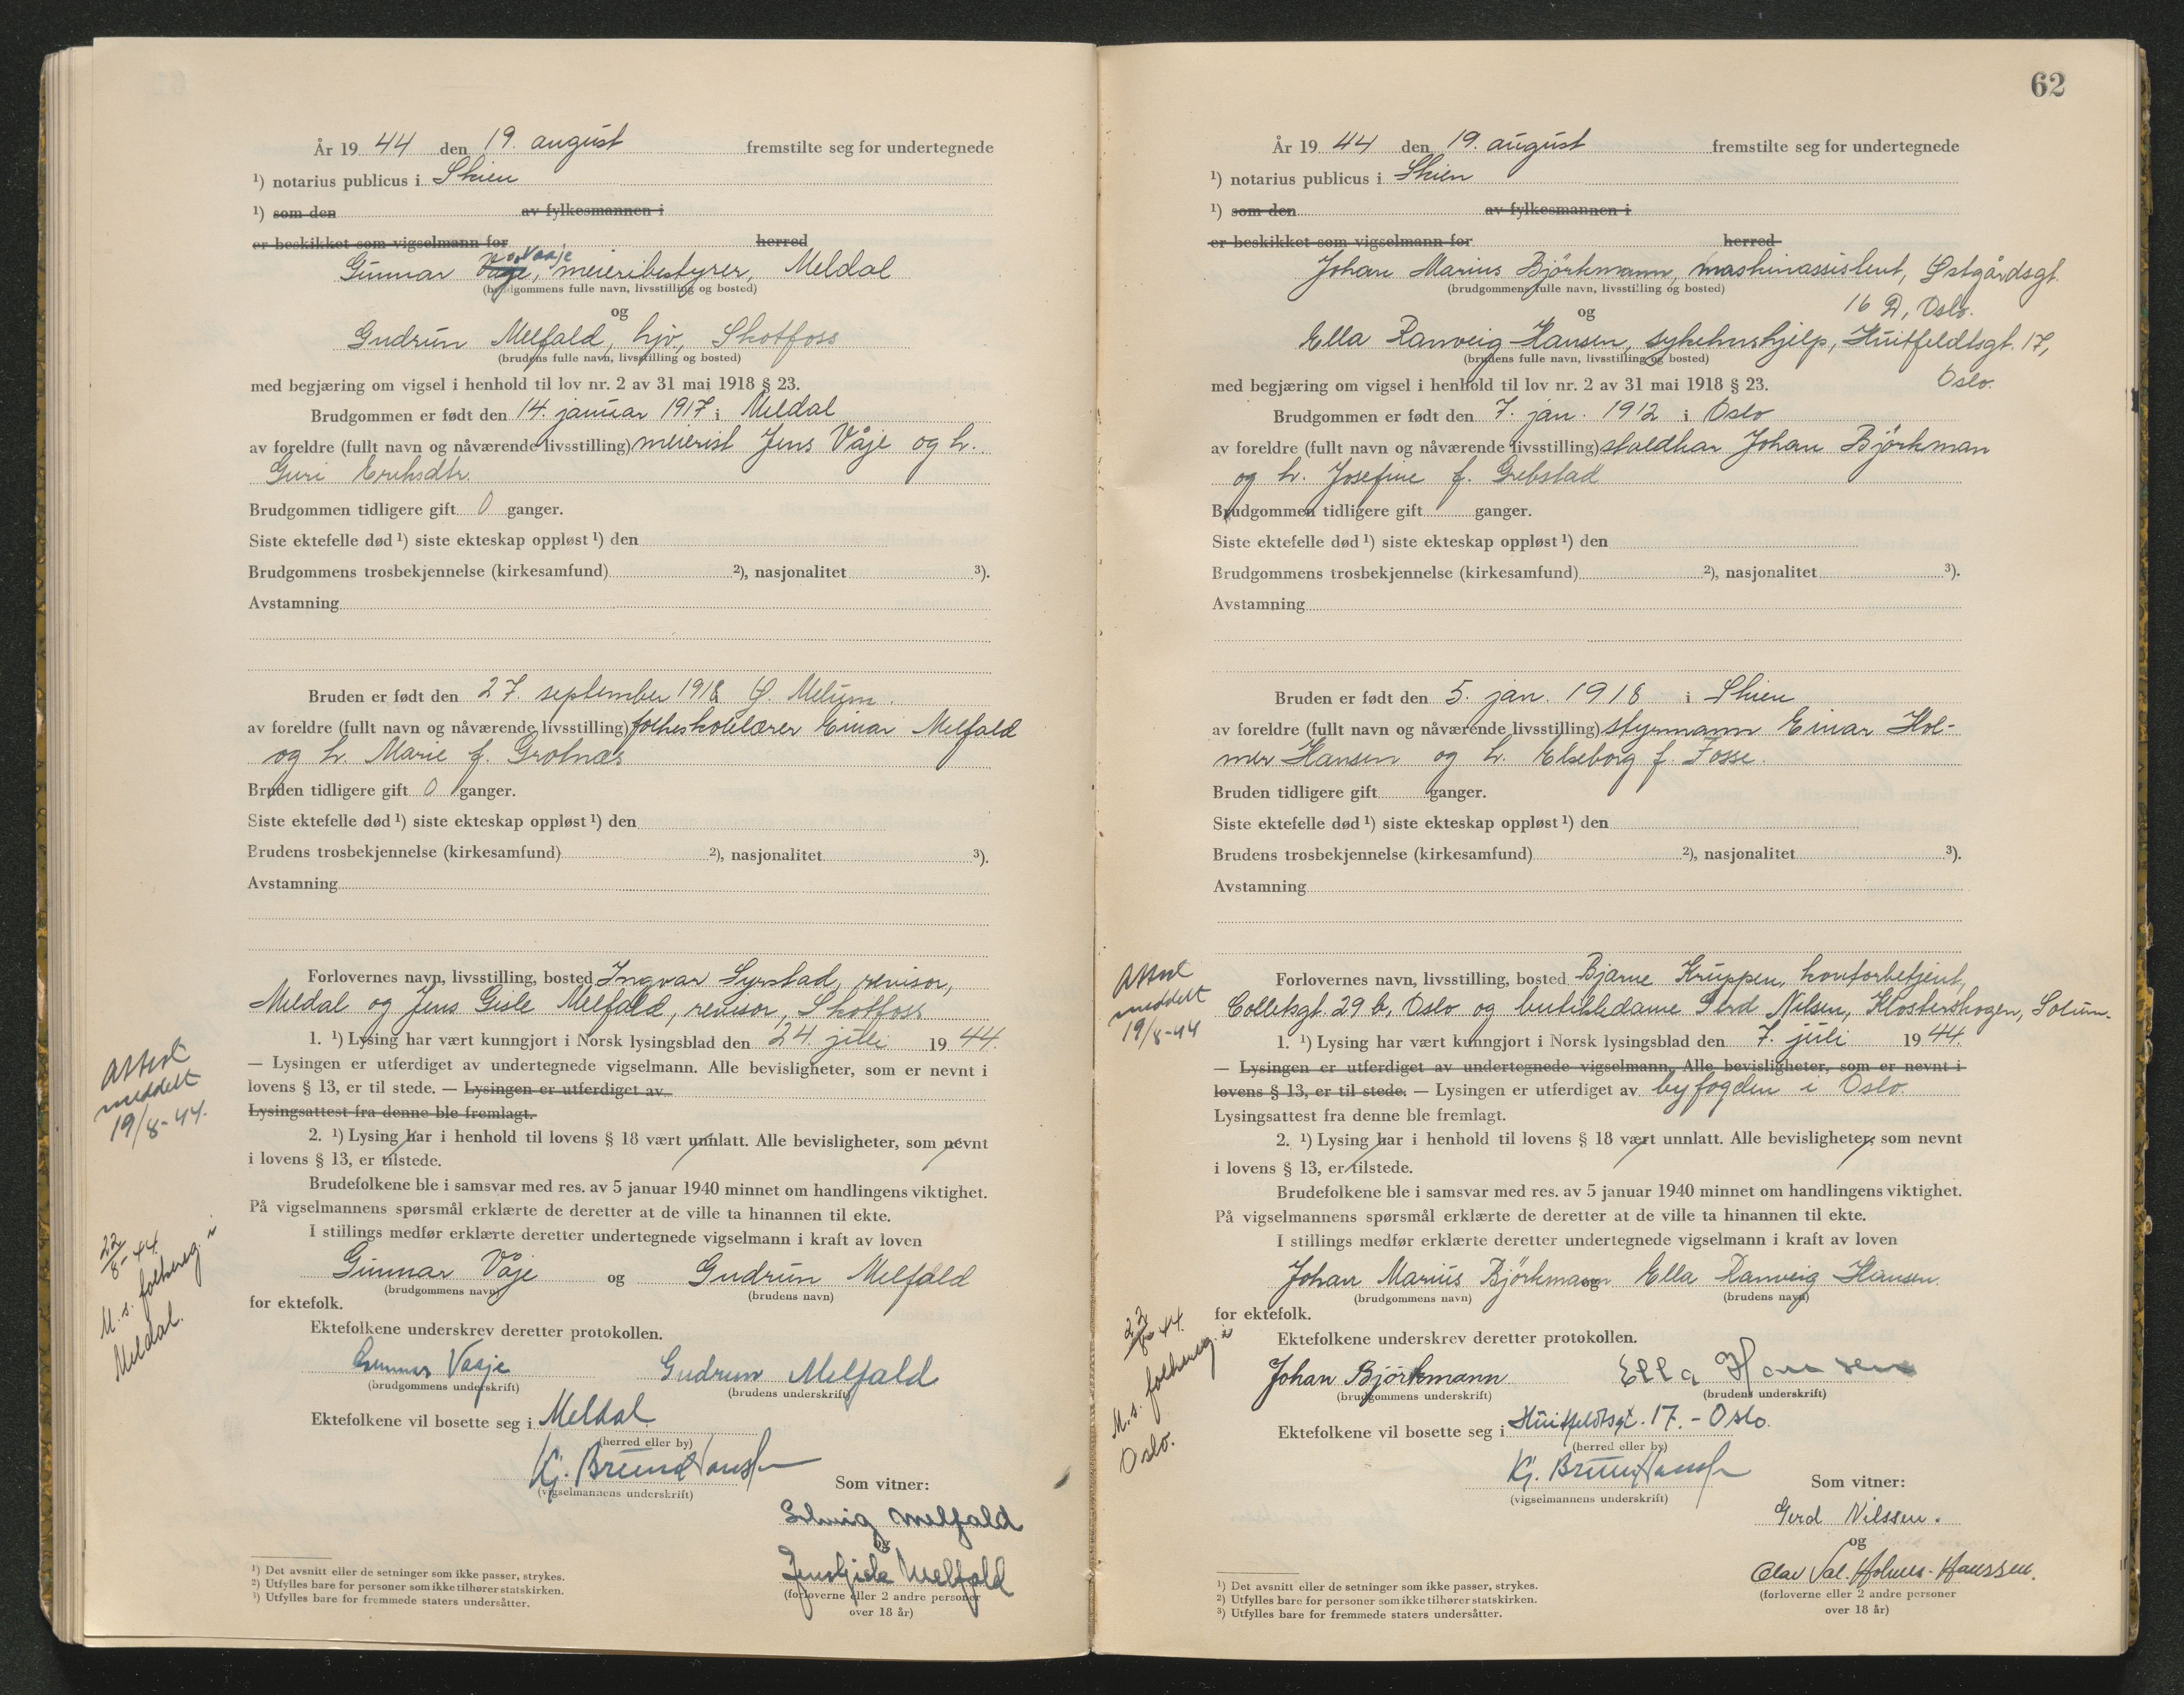 År 19 44 den 19. august fremstilte seg for undertegnede
¹) notarius publicus i Skien
¹) som den av fylkesmannen i
er beskikket som vigselmann for herred
Vaaje
Gunnar Våje, meieribestyrer, Meldal
(brudgommens fulle navn, livsstilling og bosted)
og
Gudrun Melfald, hjv, Skotfoss
(brudens fulle navn, livsstilling og bosted)
med begjæring om vigsel i henhold til lov nr. 2 av 31 mai 1918 § 23.
Brudgommen er født den 14. januar 1917 i Meldal
av foreldre (fullt navn og nåværende livsstilling) meierist Jens Våje og h.
Guri Eriksdtr.
Brudgommen tidligere gift 0 ganger.
Siste ektefelle død ¹) siste ekteskap oppløst ¹) den
Brudgommens trosbekjennelse (kirkesamfund) ²), nasjonalitet ³).
Avstamning
Bruden er født den 27. september 1918 Ø. Melum.
av foreldre (fullt navn og nåværende livsstilling) folkeskolelærer Einar Melfald
og h. Marie f. Grotnæs
Bruden tidligere gift 0 ganger.
Siste ektefelle død ¹) siste ekteskap oppløst ¹) den
Brudens trosbekjennelse (kirkesamfund) ²), nasjonalitet ³).
Avstamning
Forlovernes navn, livsstilling, bosted Ingvar Syrstad, revisor,
Meldal og Jens Gisle Melfald, revisor, Skotfoss
1. ¹) Lysing har vært kunngjort i Norsk lysingsblad den 24. juli 19 44.
— Lysingen er utferdiget av undertegnede vigselmann. Alle bevisligheter, som er nevnt i
lovens § 13, er til stede. — Lysingen er utferdiget av
Lysingsattest fra denne ble fremlagt.
2. ¹) Lysing har i henhold til lovens § 18 vært unnlatt. Alle bevisligheter, som nevnt
i lovens § 13, er tilstede.
Brudefolkene ble i samsvar med res. av 5 januar 1940 minnet om handlingens viktighet.
På vigselmannens spørsmål erklærte de deretter at de ville ta hinannen til ekte.
I stillings medfør erklærte deretter undertegnede vigselmann i kraft av loven
Gunnar Våje og Gudrun Melfald
(brudgommens navn) (brudens navn)
for ektefolk.
Ektefolkene underskrev deretter protokollen.
Gunnar Vaaje Gudrun Melfald
(brudgommens underskrift) (brudens underskrift)
Ektefolkene vil bosette seg i Meldal
(herred eller by)
Kj. Bruun Hansen
(vigselmannens underskrift)
Som vitner:
Solveig Melfald
og
Jens Gisle Melfald
(forloverne eller 2 andre personer
over 18 år)
¹) Det avsnitt eller de setninger som ikke passer, strykes.
²) Utfylles bare for personer som ikke tilhører statskirken.
³) Utfylles bare for fremmede staters undersåtter.
Attest
meddelt
19/8-44.
22/8-44.
M. s. folkereg. i
Meldal.
62
År 19 44 den 19. august fremstilte seg for undertegnede
¹) notarius publicus i Skien
¹) som den av fylkesmannen i
er beskikket som vigselmann for herred
Johan Marius Björkmann, maskinassistent, Østgårdsgt.
(brudgommens fulle navn, livsstilling og bosted)
16 D, Oslo.
og
Ella Ranveig Hansen, sykehushjelp, Huitfeldtsgt. 17,
(brudens fulle navn, livsstilling og bosted)
Oslo.
med begjæring om vigsel i henhold til lov nr. 2 av 31 mai 1918 § 23.
Brudgommen er født den 7. jan. 1912 i Oslo
av foreldre (fullt navn og nåværende livsstilling) staldkar Johan Björkman
og h. Josefine f. Grebstad
Brudgommen tidligere gift ganger.
Siste ektefelle død ¹) siste ekteskap oppløst ¹) den
Brudgommens trosbekjennelse (kirkesamfund) ²), nasjonalitet ³).
Avstamning
Bruden er født den 5. jan. 1918 i Skien
av foreldre (fullt navn og nåværende livsstilling) styrmann Einar Hol-
mer Hansen og h. Elseborg f. Fosse.
Bruden tidligere gift ganger.
Siste ektefelle død ¹) siste ekteskap oppløst ¹) den
Brudens trosbekjennelse (kirkesamfund) ²), nasjonalitet ³).
Avstamning
Forlovernes navn, livsstilling, bosted Bjarne Kruppen, kontorbetjent,
Colletsgt. 29 b, Oslo og butikkdame Gerd Nilsen, Klosterskogen, Solum.
1. ¹) Lysing har vært kunngjort i Norsk lysingsblad den 7. juli 19 44.
— Lysingen er utferdiget av undertegnede vigselmann. Alle bevisligheter, som er nevnt i
lovens § 13, er til stede. — Lysingen er utferdiget av byfogden i Oslo.
Lysingsattest fra denne ble fremlagt.
2. ¹) Lysing har i henhold til lovens § 18 vært unnlatt. Alle bevisligheter, som nevnt
i lovens § 13, er tilstede.
Brudefolkene ble i samsvar med res. av 5 januar 1940 minnet om handlingens viktighet.
På vigselmannens spørsmål erklærte de deretter at de ville ta hinannen til ekte.
I stillings medfør erklærte deretter undertegnede vigselmann i kraft av loven
Johan Marius Björkmann og Ella Ranveig Hansen.
(brudgommens navn) (brudens navn)
for ektefolk.
Ektefolkene underskrev deretter protokollen.
Johan Bjørkmann Ella Hansen
(brudgommens underskrift) (brudens underskrift)
Ektefolkene vil bosette seg i Huitfeldtsgt. 17. - Oslo.
(herred eller by)
Kj. Bruun Hansen
(vigselmannens underskrift)
Som vitner:
Gerd Nilssen.
og
Olav Val. Holmer-Hanssen.
(forloverne eller 2 andre personer
over 18 år)
¹) Det avsnitt eller de setninger som ikke passer, strykes.
²) Utfylles bare for personer som ikke tilhører statskirken.
³) Utfylles bare for fremmede staters undersåtter.
Attest
meddelt
19/8-44
22/8 44.
M. s. folkereg. i
Oslo.